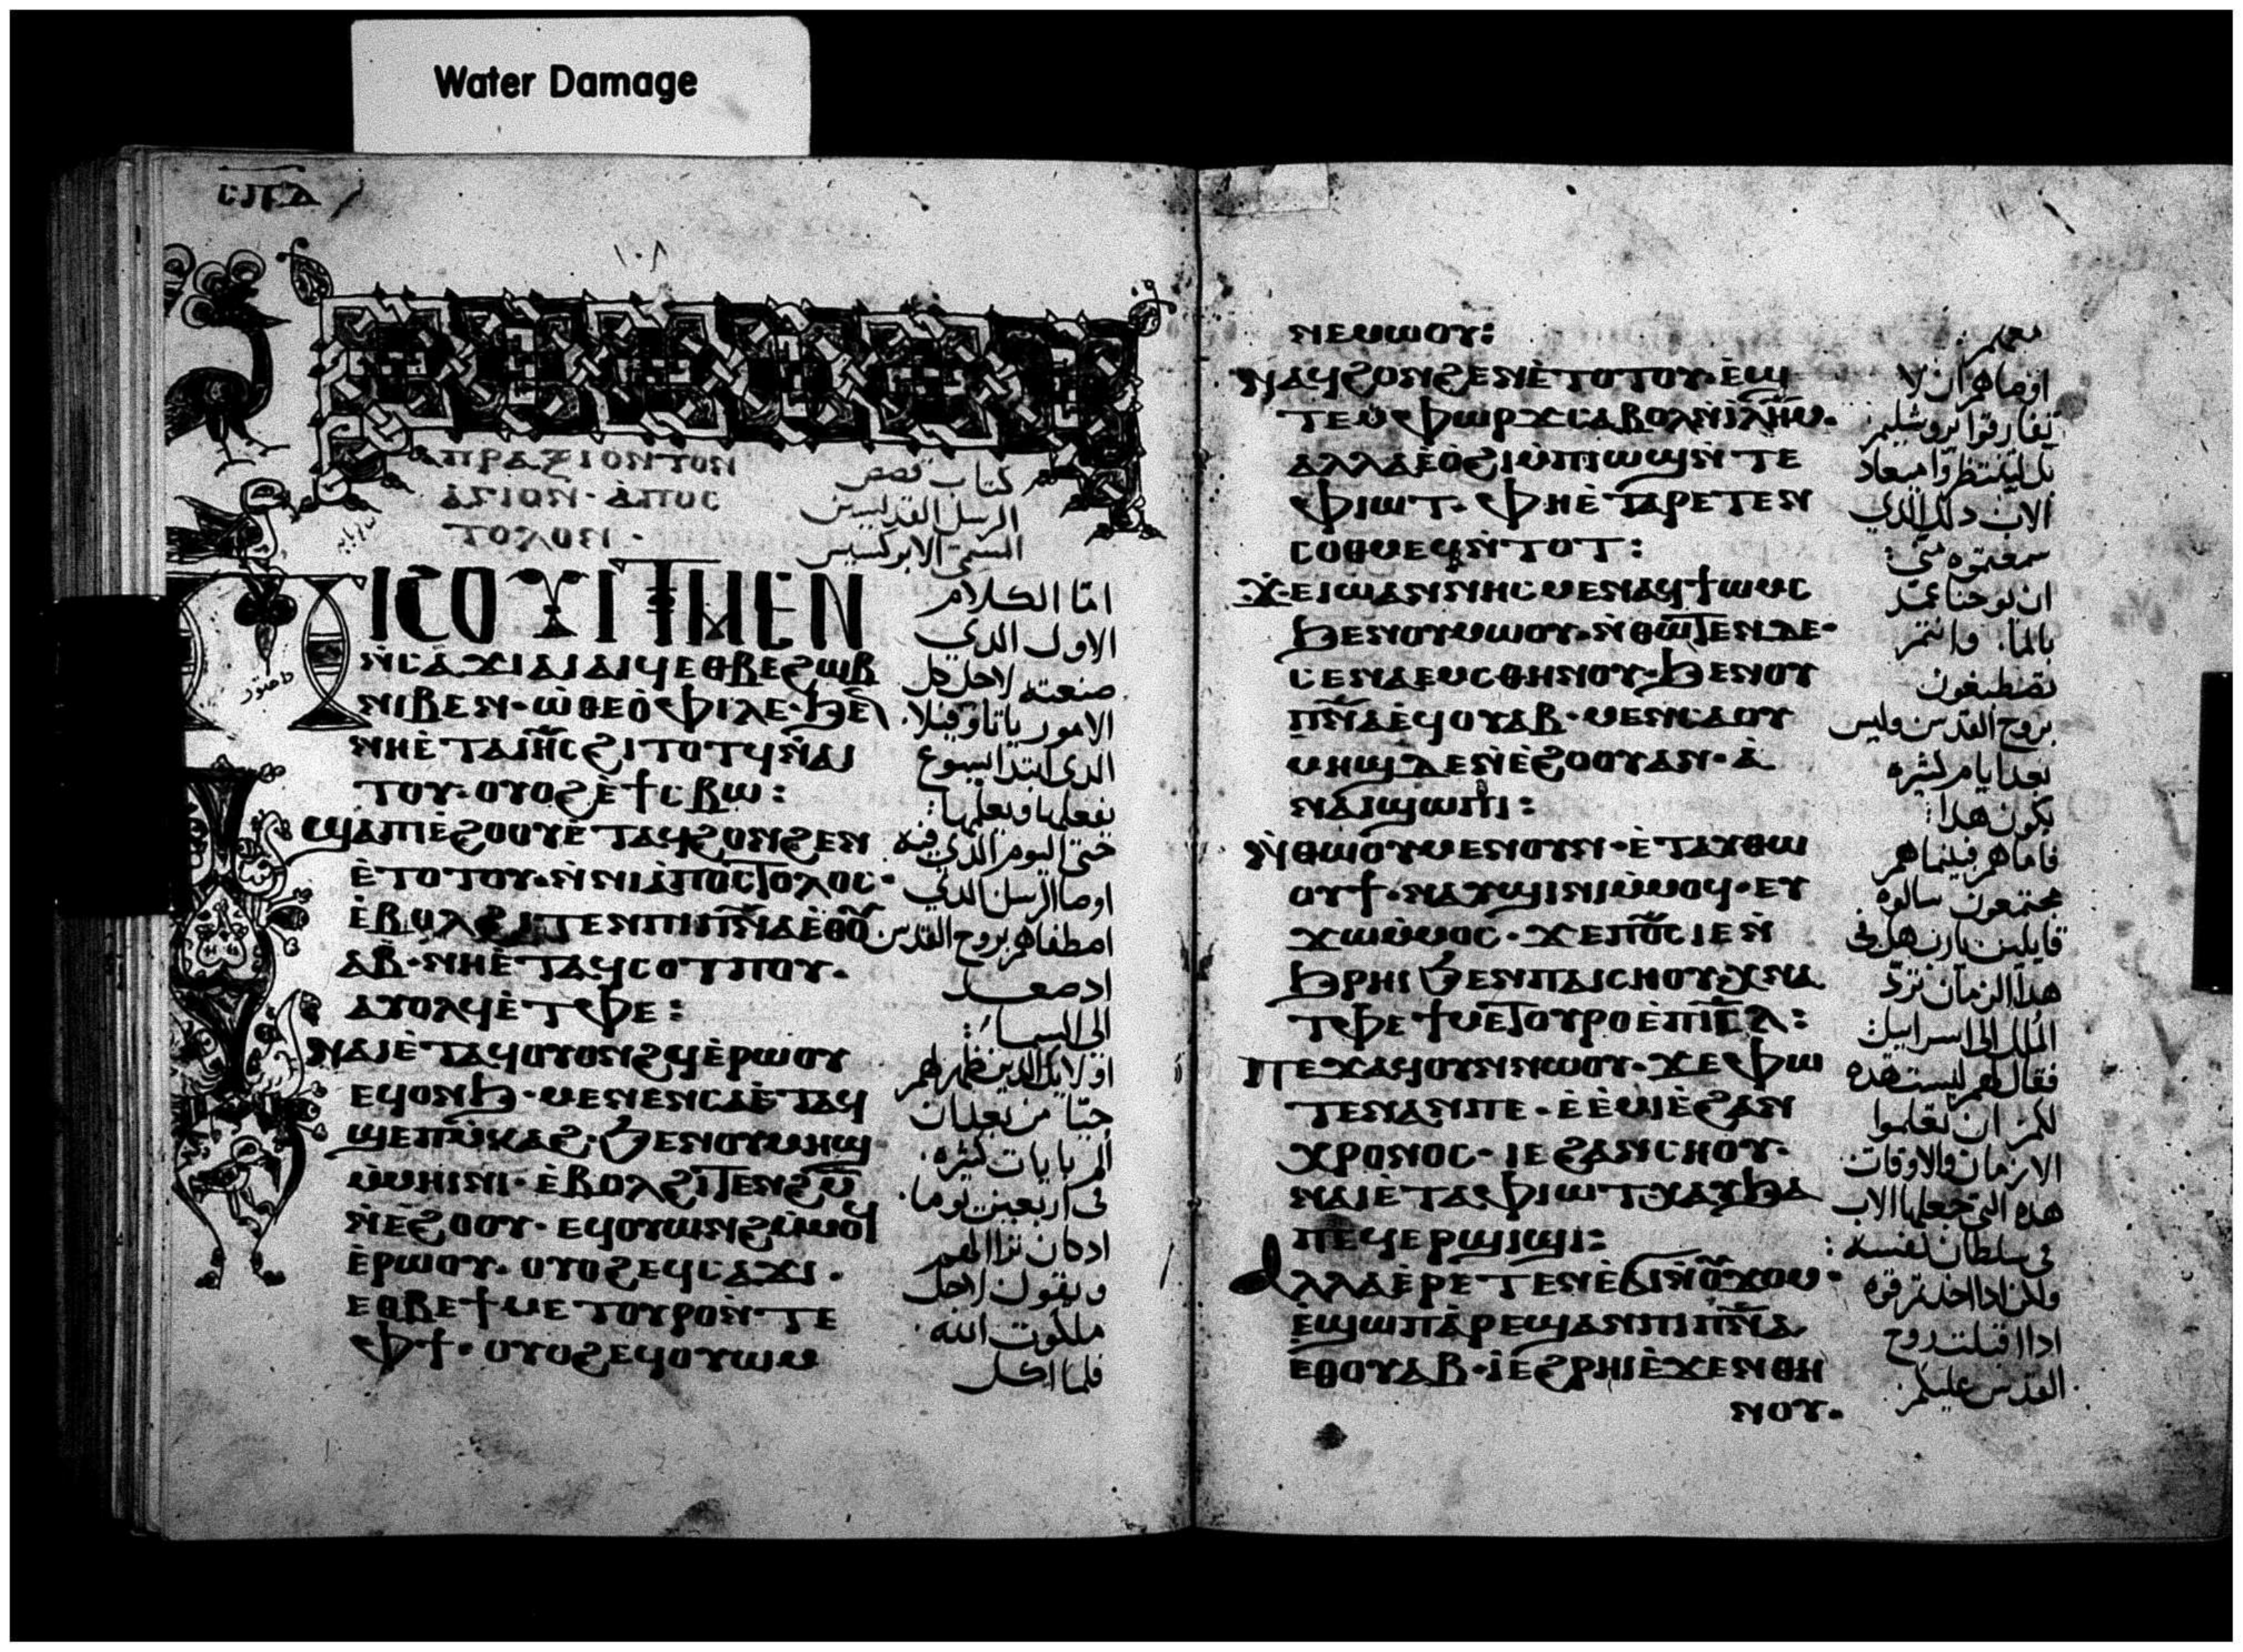 Water Damage
ⲥⲡⲇ
١٠٨
ⲡⲣⲁⲝⲓⲟⲛ ⲧⲟⲛ
ⲁⲅⲓⲟⲛ · ⲁⲡⲟⲥ
ⲧⲟⲗⲟⲛ ·
كتاب قصص
الرسل القديسين
السمى الابركسيس
ⲡⲓⲥⲟϫⲓ ⲙⲉⲛ
ⲛ̀ⲥⲁϫⲓ ⲁⲓⲁⲓϥ ⲉⲑⲃⲉ ϩⲱⲃ
ⲛⲓⲃⲉⲛ · ⲱ̀ ⲑⲉⲟ̀ⲫⲓⲗⲉ · ϧⲉⲛ
ⲛⲏ ⲉ̀ⲧⲁ ⲓⲏ̅ⲥ ϩⲓⲧⲟⲧϥ ⲛ̀ⲁⲓ
ⲧⲟⲩ · ⲟⲩⲟϩ ⲉ̀ϯⲥⲃⲱ :
ϣⲁ ⲡⲓⲉ̀ϩⲟⲟⲩ ⲉ̀ⲧⲁϥϩⲟⲛϩⲉⲛ
ⲉ̀ⲧⲟⲧⲟⲩ · ⲛ̀ⲛⲓⲁ̀ⲡⲟⲥⲧⲟⲗⲟⲥ ·
ⲉ̀ⲃⲟⲗ ϩⲓⲧⲉⲛ ⲡⲓⲡ̅ⲛ̅ⲁ ⲉ̀ⲑⲟⲩ
ⲁⲃ · ⲛⲏ ⲉ̀ⲧⲁϥⲥⲟⲧⲡⲟⲩ ·
ⲁⲩⲟⲗϥ ⲉ̀ⲧⲫⲉ :
ⲛⲁⲓ ⲉ̀ⲧⲁϥⲟⲩⲟⲛϩϥ ⲉ̀ⲣⲱⲟⲩ
ⲉϥⲟⲛϧ · ⲙⲉⲛⲉⲛⲥⲁ ⲉ̀ⲧⲁϥ
ϣⲉⲡⲙ̀ⲕⲁϩ · ϧⲉⲛ ⲟⲩⲙⲏϣ
ⲙ̀ⲙⲏⲓⲛⲓ · ⲉ̀ⲃⲟⲗ ϩⲓⲧⲉⲛ ϩ̅ⲙ̅
ⲛ̀ⲉ̀ϩⲟⲟⲩ · ⲉϥⲟⲩⲱⲛϩ ⲙ̀ⲙⲟϥ
ⲉ̀ⲣⲱⲟⲩ · ⲟⲩⲟϩ ⲉϥⲥⲁϫⲓ ·
ⲉⲑⲃⲉ ϯⲙⲉⲧⲟⲩⲣⲟ ⲛ̀ⲧⲉ
ⲫϯ · ⲟⲩⲟϩ ⲉϥⲟⲩⲱⲙ
امّا الكلام
الاول الدى
صنعته لاجل كل
الامور ياتاوفيلا
الدى ابتدا ايسوع
بفعلها وبعلمها :
حتى اليوم الذي فيه
اوصا الرسل الدي
اصطفاهم بروح القدس
اد صعد
الى السما :
اولايك الدين ظهر لهم
حيّا من بعد ان
الم بايات كثيرة
فى اربعين يوما
ادكان ترااالهم
ويقول لاجل
ملكوت الله
فلما اكل
ⲛⲉⲙⲱⲟⲩ :
ⲛⲁϥϩⲟⲛϩⲉⲛ ⲉ̀ⲧⲟⲧⲟⲩ · ⲉ̀ϣ
ⲧⲉⲙⲫⲱⲣϫ ⲥⲁⲃⲟⲗ ⲛ̀ⲓ̀ⲗ̅ⲏ̅ⲙ ·
ⲁⲗⲗⲁ ⲉ̀ⲟ̀ϩⲓ ⲙ̀ⲡⲓⲱϣ ⲛ̀ⲧⲉ
ⲫⲓⲱⲧ · ⲫⲏ ⲉ̀ⲧⲁⲣⲉⲧⲉⲛ
ⲥⲟⲑⲙⲉϥ ⲛ̀ⲧⲟⲧ :
ϫⲉ ⲓⲱⲁⲛⲛⲏⲥ ⲙⲉⲛ ⲁϥϯⲱⲙⲥ
ϧⲉⲛ ⲟⲩⲙⲱⲟⲩ · ⲛ̀ⲑⲱⲧⲉⲛ ⲇⲉ ·
ⲥⲉⲛⲁⲉⲙⲥ ⲑⲏⲛⲟⲩ · ϧⲉⲛ ⲟⲩ
ⲡ̅ⲛ̅ⲁ ⲉ̀ϥⲟⲩⲁⲃ · ⲙⲉⲛⲉⲛⲥⲁ ⲟⲩ
ⲙⲏϣ ⲇⲉ ⲛ̀ⲉ̀ϩⲟⲟⲩ ⲁⲛ · ⲁ̀
ⲛⲁⲓ ϣⲱⲡⲓ :
ⲛ̀ⲑⲱⲟⲩ ⲙⲉⲛ ⲟⲩⲛ · ⲉ̀ⲧⲁⲩⲑⲱ
ⲟⲩϯ · ⲛⲁⲩϣⲓⲛⲓ ⲙ̀ⲙⲟϥ · ⲉⲩ
ϫⲱ ⲙ̀ⲙⲟⲥ · ϫⲉ ⲡϭⲥ ⲓⲉ ⲛ̀
ϧⲣⲏⲓ ϧⲉⲛ ⲡⲁⲓⲥⲏⲟⲩ ⲭⲛⲁ
ⲧⲫⲉ ϯⲙⲉⲧⲟⲩⲣⲟ ⲉ̀ⲡⲓⲥ̅ⲗ :
ⲡⲉϫⲁϥ ⲟⲩⲛ ⲛⲱⲟⲩ · ϫⲉ ⲫⲱ
ⲧⲉⲛ ⲁⲛ ⲡⲉ · ⲉ̀ⲉ̀ⲙⲓ ⲉ̀ϩⲁⲛ
ⲭⲣⲟⲛⲟⲥ · ⲓⲉ ϩⲁⲛⲥⲏⲟⲩ ·
ⲛⲁⲓ ⲉ̀ⲧⲁ ⲫⲓⲱⲧ ⲭⲁⲩ ϧⲁ
ⲡⲉϥⲉⲣϣⲓϣⲓ :
ⲁⲗⲗⲁ ⲉ̀ⲣⲉⲧⲉⲛⲉ̀ϭⲓ ⲛ̀ⲟⲩϫⲟⲙ ·
ⲉ̀ϣⲱⲡ ⲁ̀ⲣⲉϣⲁⲛ ⲡⲓⲡ̅ⲛ̅ⲁ
ⲉⲑⲟⲩⲁⲃ · ⲓ̀ ⲉ̀ϩⲣⲏⲓ ⲉ̀ϫⲉⲛ ⲑⲏ
ⲛⲟⲩ ·
معهم
اوصاهم ان لا
تفارقوا يروشليم
بل لينتظروا ميعاد
الاب دلك الدي
سمعتوه منى :
ان يوحنا عمد
بالما · وانتم
تصطبغون
بروح القدس وليس
بعد ايام كثيرة
يكون هدا :
فاما هم فبينما هم
مجتمعون سالوه
قايلين يارب هل فى
هدا الزمان تردّ
الملك الى اسراييل :
فقال لهم ليست هده
لكم ان تعلموا
الازمان والاوقات
هده التي جعلها الاب
فى سلطان نفسه :
ولكن ادا اخدتم قوة
اداا قبلت روح
القدس عليكم